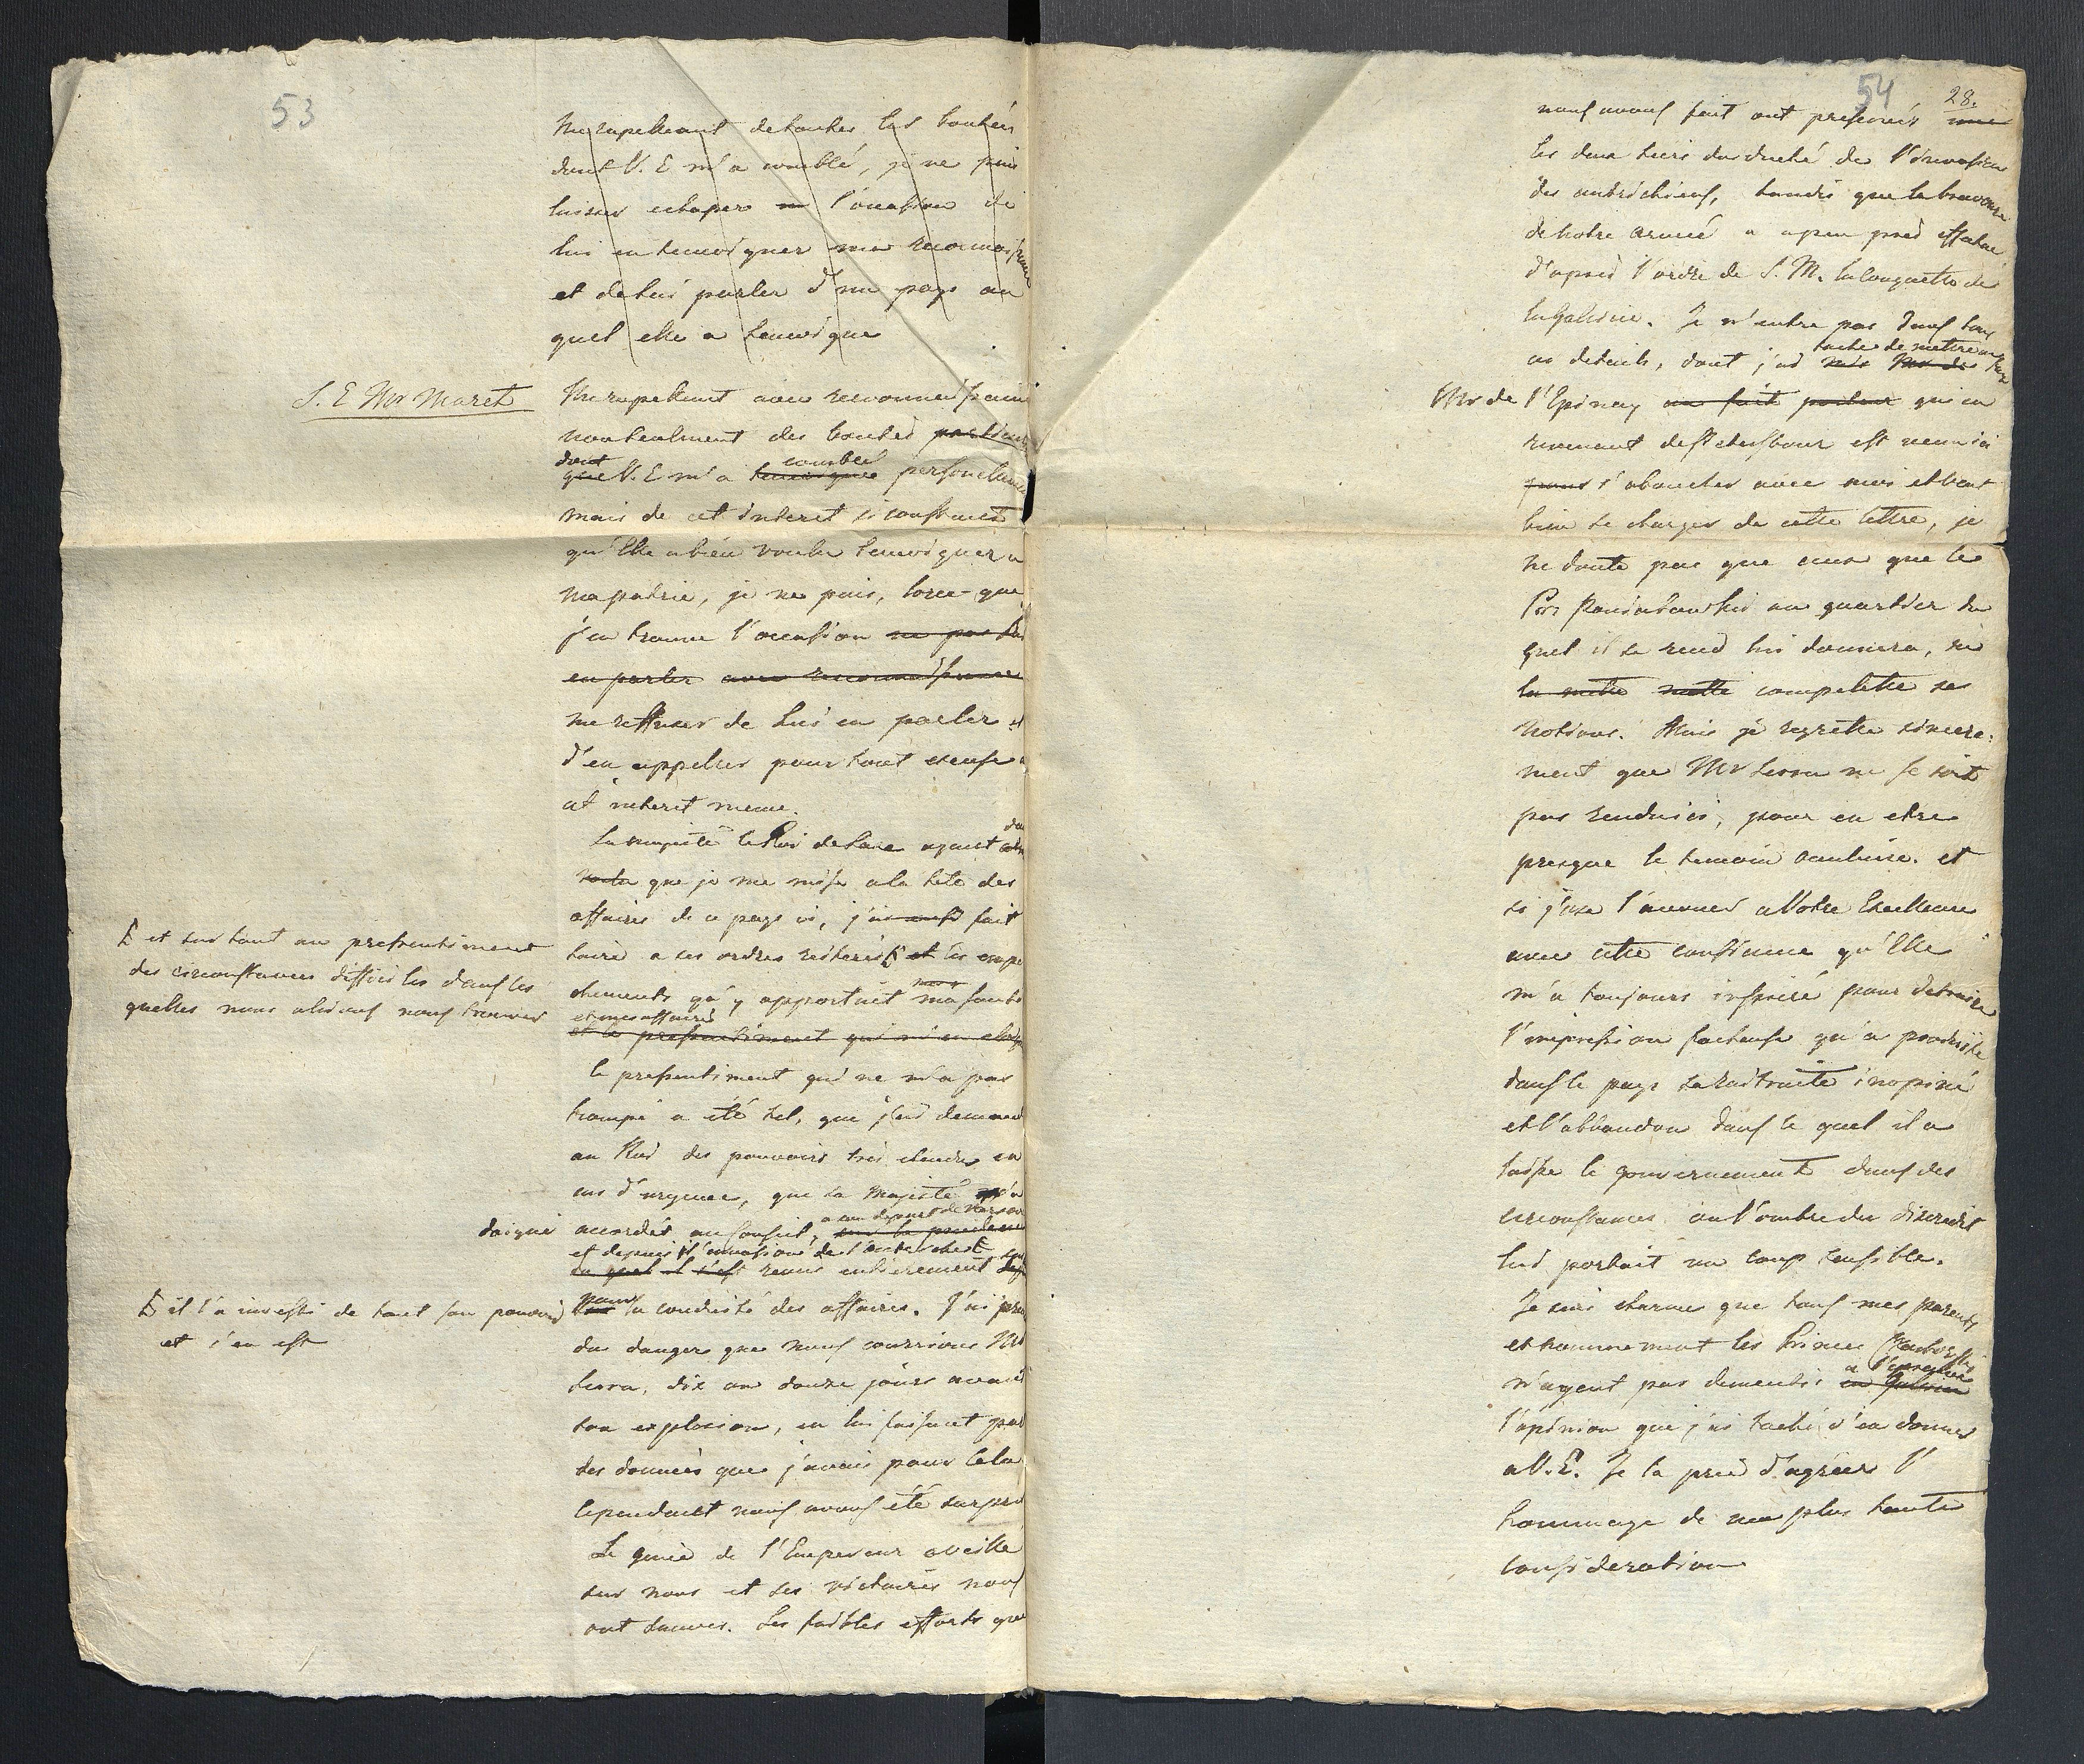 53
Me rapellant de toutes les bontés
dont V. E m'a comblé, je ne puis
laisser echaper l'occasion de
lui en temoigner ma reconnoissance
et de lui parler d'un pays au
quel elle a temoigné
S. E Mr Maret
Me rapellant avec reconnoissance
non seulment des bontés
dont
comblé
que V. E m'a temoignée personellement
mais de cet interet si constant
qu'Elle a bien voulu temoigner a
ma patrie, je ne puis, lorsque
j'en trouve l'occasion ne pas lui
en parler avec reconnoissance
me reffuser de Lui en parler et
d'en appeller pour tout excuse a
cet interet meme.
Sa majesté le Roi de Saxe ayant
voulu que je me misse a la tete des
affaires de ce pays ci, j'ai fait
taire a ses ordres reiterés et les empe
et sur tout un pressentiment
des circonstances difficiles dans les
quelles nous allions nous trouver
chements qu'y apportoit ma santé
et mes affaires
et le pressentiment qui m'en
le pressentiment qui ne m'a pas
trompé a été tel, que j'ai demandé
au Roi des pouvoirs très etendus en
cas d'urgence, que sa Majesté m'a
daigné
accordés au conseil,
a son depart de Varsovie
et depuis l'invasion de l'autrichien
du quel il s'est remis entierement
il l'a investi de tout son pouvoir
et s'en est
pour la conduite des affaires. J'ai prevu
du danger que nous courrions Mr
Serra, dix ou douze jours avant
son explosion, en lui faisant part
des données que j'avais pour cela
Cependant nous avons été surpris
Le genie de l'Empereur a veillé
sur nous et ses victoires nous
ont sauvés. Les faibles efforts que
54
28.
nous avons fait ont preservés
les deux tiers du duché de l'invasion
des autrichiens, tandis que la bravoure
de notre armée a a peu pres effectué
d'apres l'ordre de S. M. la conquette de
la Galicie. Je n'entre pas dans tous
ces details, dont j'ai
taché de mettre au
Mr de l'Epinay un fait porteur qui en
revenant de Petersbour est venu ici
pour s'aboucher avec moi et veut
bien se charger de cette lettre, je
ne doute pas que ceux que le
Pce Poniatowski au quartier du
quel il se rend lui donnera, ne
la mette completter ses
notions. Mais je regrette sincere-
ment que Mr Serra ne se soit
pas rendu ici, pour en etre
presque le temoin oculaire. et
si j'ose l'avouer a Votre Excellence
avec cette confiance qu'Elle
m'a toujours inspiré pour detruire
l'impression facheuse qu'a produite
dans le pays sa retraite inopiné
et l'abbandon dans le quel il a
laissé le gouvernement dans des
circonstances ou l'ombre du discredit
lui portait un coup sensible.
Je suis charmé que tous mes parents
et nommement les Princes
n'ayent pas dementi
a l'epreuve
en Galicie
l'opinion que j'ai taché d'en donner
a V. E. Je la prie d'agréer l'
hommage de ma plus haute
consideration